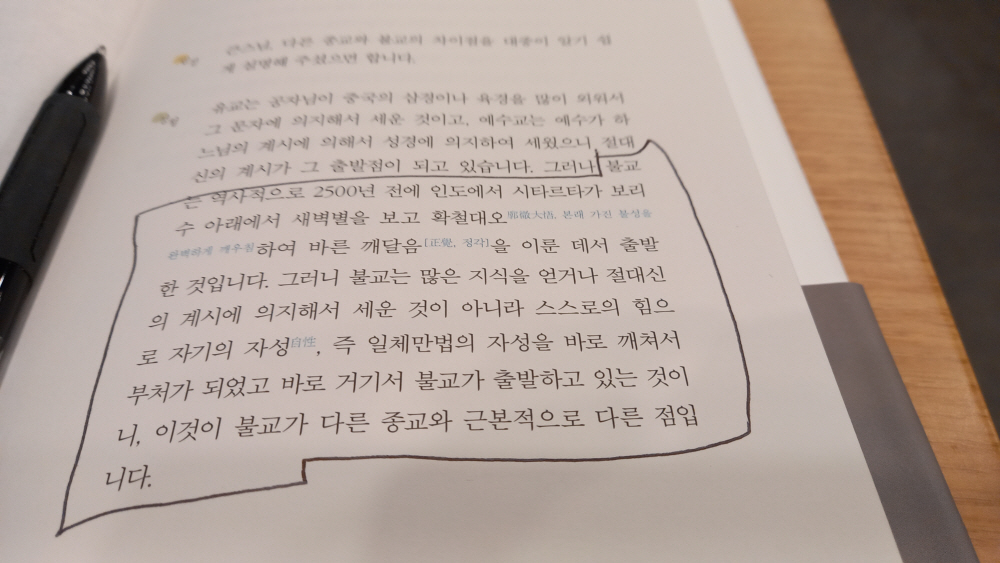 큰스님, 다른 종교와 불교의 차이점을 대중이 알기 쉽
게 설명해 주셨으면 합니다.
유교는 공자님이 중국의 삼경이나 육경을 많이 외워서
그 문자에 의지해서 세운 것이고, 예수교는 예수가 하
느님의 계시에 의해서 성경에 의지하여 세웠으니 절대
신의 계시가 그 출발점이 되고 있습니다. 그러나 불교
는 역사적으로 2500년 전에 인도에서 시타르타가 보리
수 아래에서 새벽별을 보고 확철대오廓徹大悟, 본래 가진 불성을
완벽하게 깨우침하여 바른 깨달음[正覺, 정각]을 이룬 데서 출발
한 것입니다. 그러니 불교는 많은 지식을 얻거나 절대신
의 계시에 의지해서 세운 것이 아니라 스스로의 힘으
로 자기의 자성自性, 즉 일체만법의 자성을 바로 깨쳐서
부처가 되었고 바로 거기서 불교가 출발하고 있는 것이
니, 이것이 불교가 다른 종교와 근본적으로 다른 점입
니다.